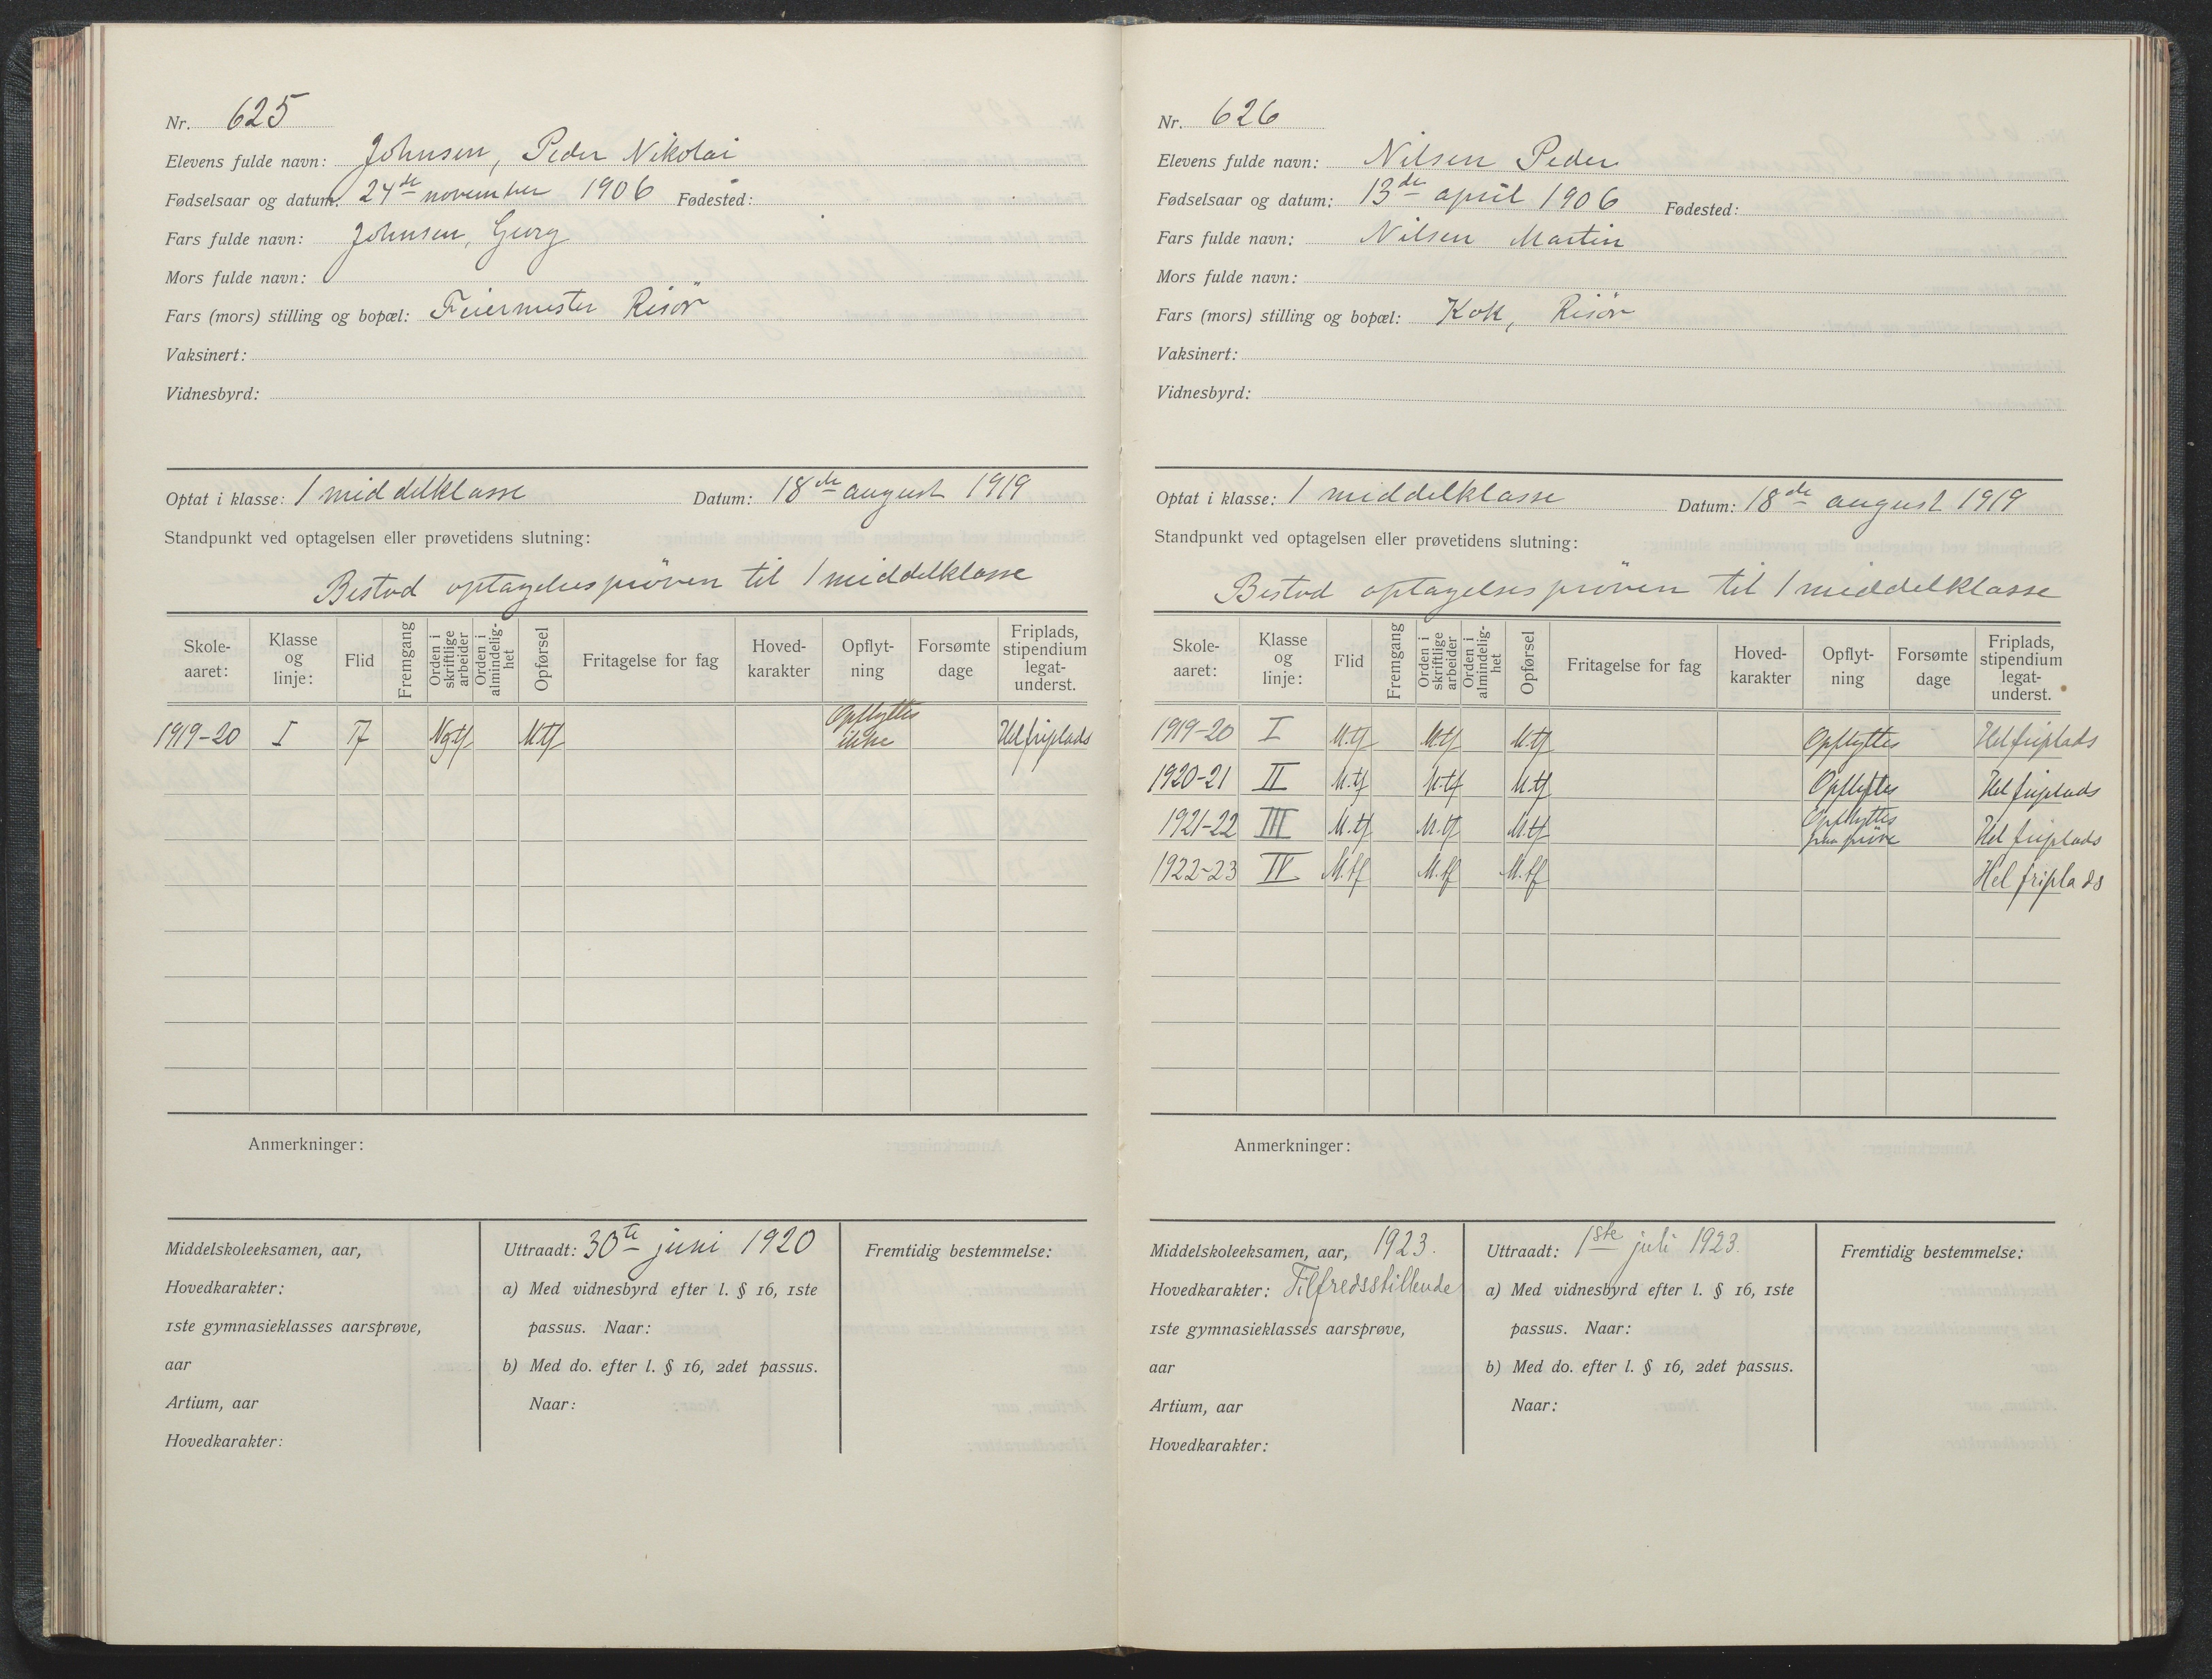 Nr. 625
Elevens fulde navn: Johnsen, Peder Nikolai
Fødselsaar og datum: 24de november 1906 Fødested:
Fars fulde navn: Johnsen, Georg
Mors fulde navn:
Fars (mors) stilling og bopæl: Feiermester Risör
Vaksinert:
Vidnesbyrd:
Optat i klasse: 1 middelklasse Datum: 18de august 1919
Standpunkt ved optagelsen eller prøvetidens slutning:
Bestod optagelsespröven til 1 middelklasse
Skole-aaret: Klasse og linje: Flid Fremgang Orden i skriftlige arbeider Orden i almindelig-het Opførsel Fritagelse for fag Hoved-karakter Opflyt-ning Forsømte dage Friplads, stipendium legat-underst.
1919-20 I T Ngtf Mtf Opflyttes ikke Hel friplads
Anmerkninger:
Middelskoleeksamen, aar,
Hovedkarakter:
1ste gymnasieklasses aarsprøve,
aar
Artium, aar
Hovedkarakter:
Uttraadt: 30te juni 1920
a) Med vidnesbyrd efter l. § 16, 1ste
passus. Naar:
b) Med do. efter l. § 16, 2det passus.
Naar:
Fremtidig bestemmelse:
Nr. 626
Elevens fulde navn: Nilsen Peder
Fødselsaar og datum: 13de april 1906 Fødested:
Fars fulde navn: Nilsen Martin
Mors fulde navn:
Fars (mors) stilling og bopæl: Kok, Risör
Vaksinert:
Vidnesbyrd:
Optat i klasse: 1 middelklasse Datum: 18de august 1919
Standpunkt ved optagelsen eller prøvetidens slutning:
Bestod optagelsespröven til 1 middelklasse
Skole-aaret: Klasse og linje: Flid Fremgang Orden i skriftlige arbeider Orden i almindelig-het Opførsel Fritagelse for fag Hoved-karakter Opflyt-ning Forsømte dage Friplads, stipendium legat-underst.
1919-20 I M.tf M.tf M.tf Opflyttes Hel friplads
1920-21 II M.tf M.tf M.tf Opflyttes Hel friplads
1921-22 III M.tf M.tf M.tf Opflyttes paa pröve Hel friplads
1922-23 IV M.tf M.tf M.tf Hel friplads
Anmerkninger:
Middelskoleeksamen, aar, 1923.
Hovedkarakter: Tilfredsstillende
1ste gymnasieklasses aarsprøve,
aar
Artium, aar
Hovedkarakter:
Uttraadt: 1ste juli 1923.
a) Med vidnesbyrd efter l. § 16, 1ste
passus. Naar:
b) Med do. efter l. § 16, 2det passus.
Naar:
Fremtidig bestemmelse: